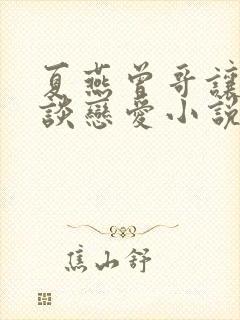 夏燕曾哥讓
談戀愛小說
焦山舒